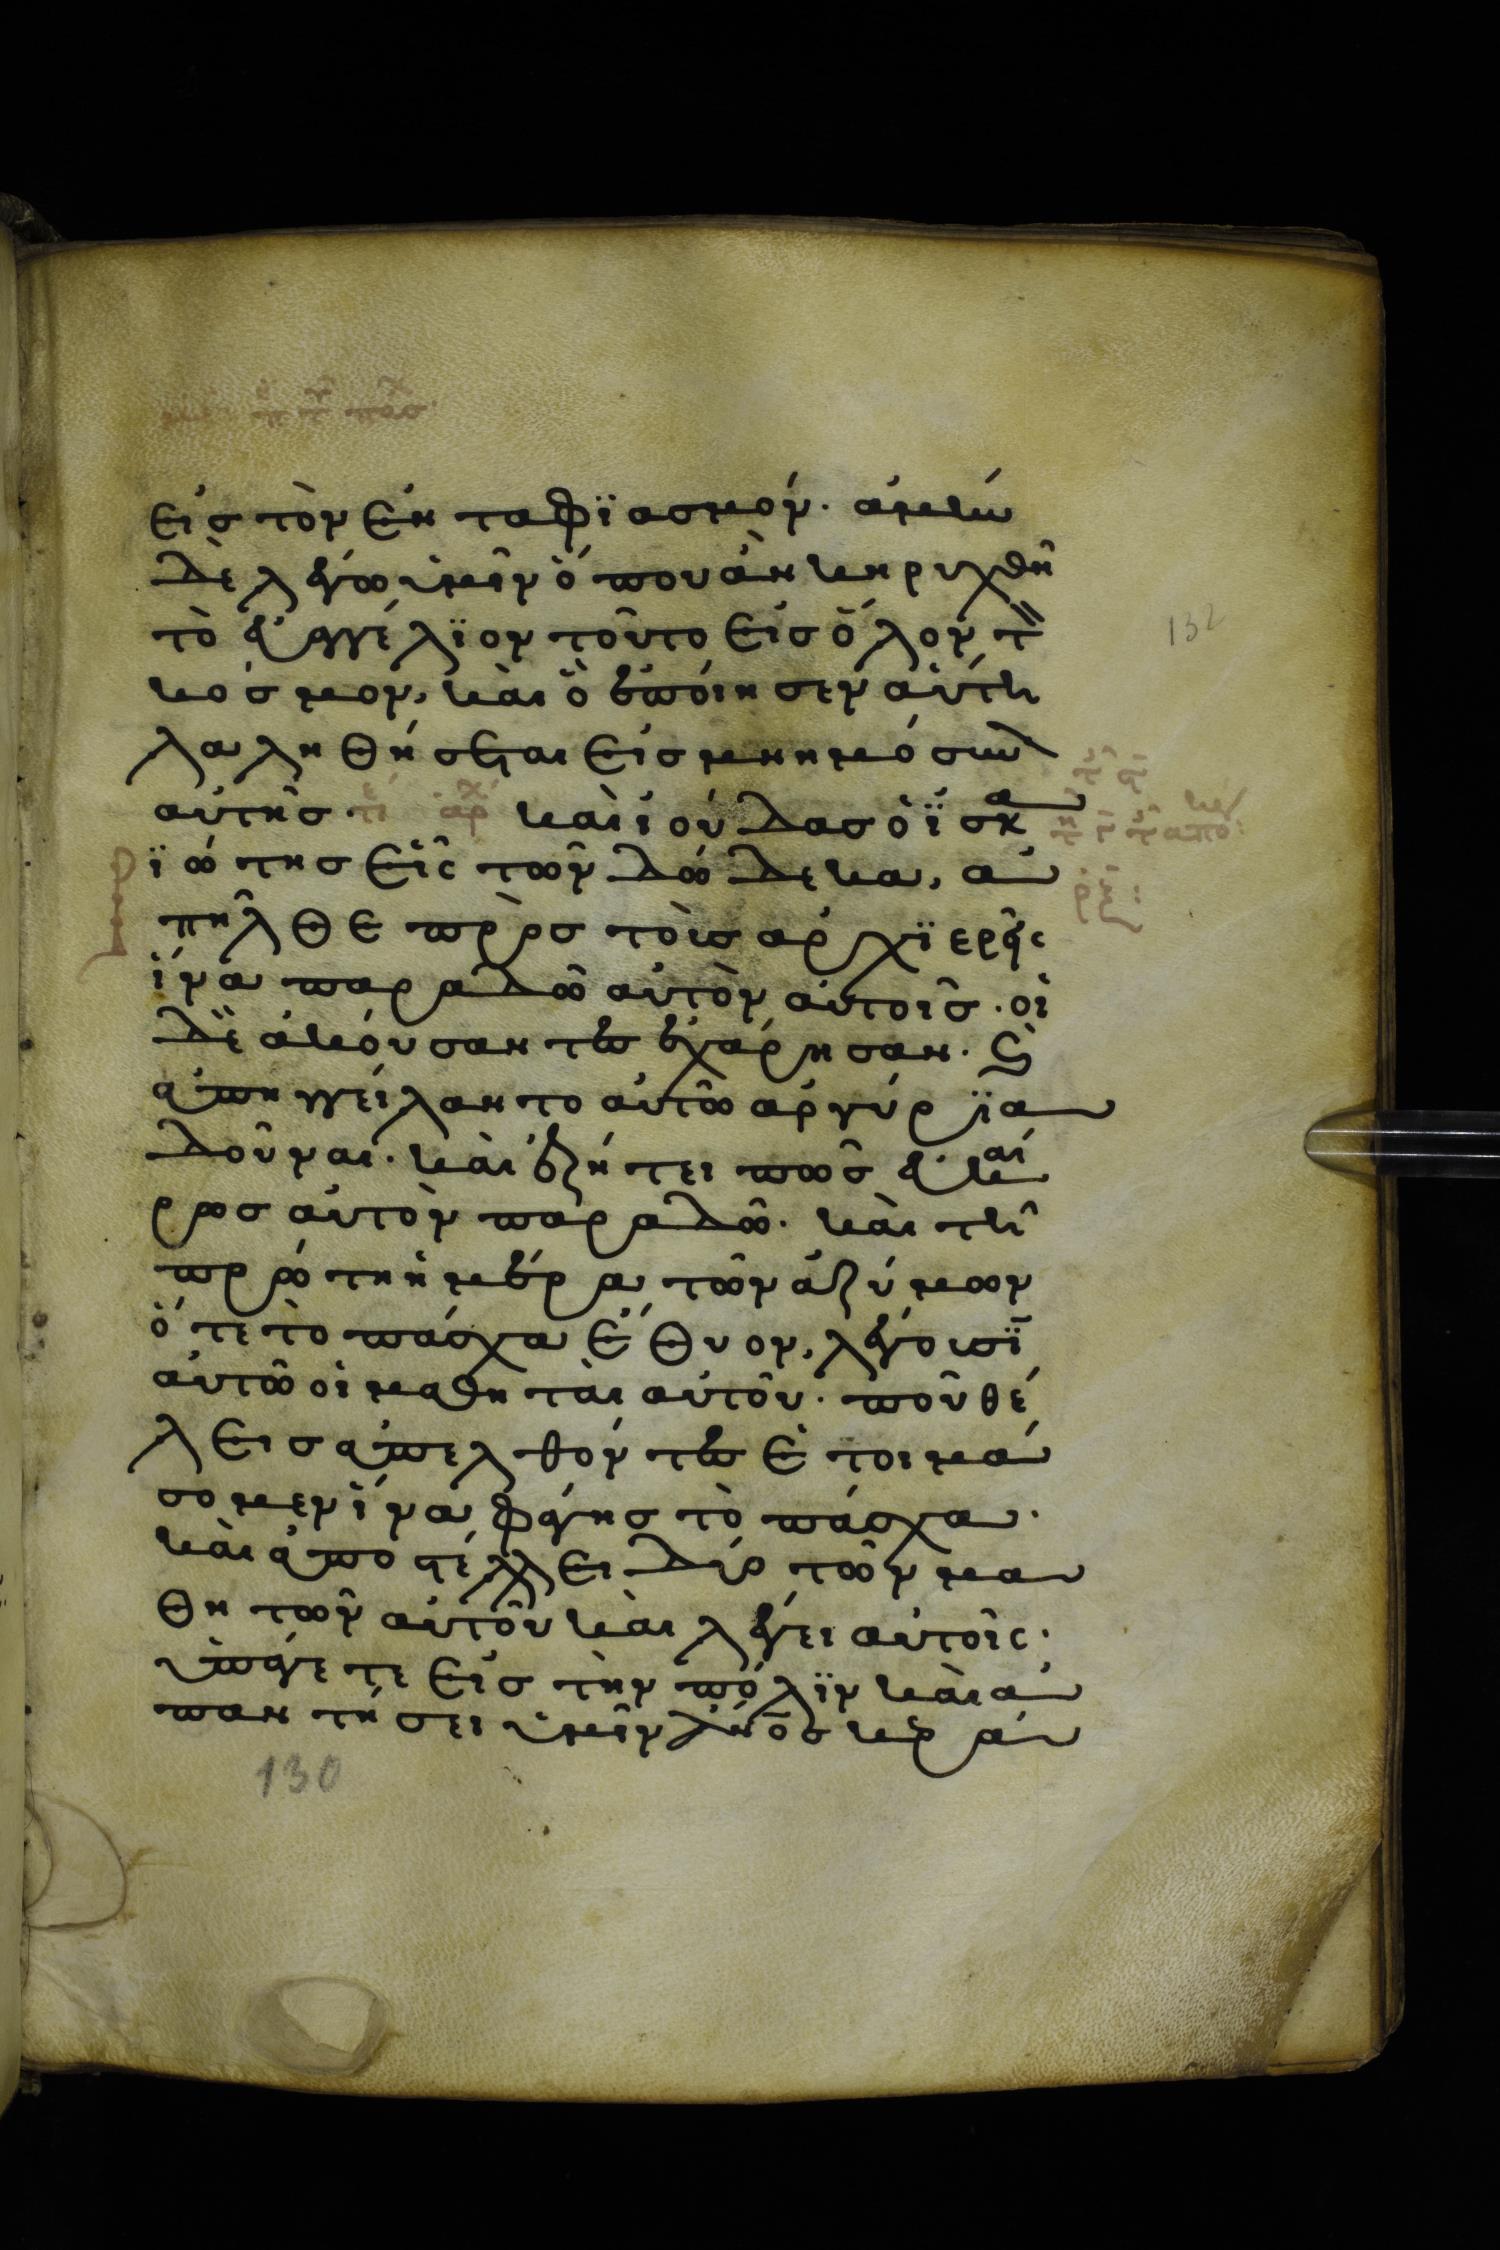 εἰσ τὸν ἐνταφϊασμόν. ἀμὴν
δὲ λέγω ὑμῖν ὅπου ἂν κηρυχθῆ
τὸ εὐαγγέλϊον τοῦτο εἰσ ὅλον τὸν
κόσμον, καὶ ὃ ἐποίησεν αὕτη
λαληθήσεται εἰσ μνημόσυνον
αὐτῆσ. καὶ ἰούδασ ὁ ϊσκα
ρϊώτησ εἷς τῶν δώδεκα, ἀ
πῆλθε πρὸσ τοὺσ ἀρχϊερεῖς
ἵνα παραδῶ αὐτὸν αὐτοῖσ. οἱ
δὲ ἀκούσαντες ἐχάρησαν. καὶ
ἐπηγγείλαντο αὐτῶ ἀργύρϊα
δοῦναι. καὶ ἐζήτει πῶσ εὐκαί
ρωσ αὐτὸν παραδῶ. καὶ τῆ
πρώτη ἡμέρα τῶν ἀζύμων
ὅτε τὸ πάσχα ἔθυον, λέγουσϊν
αὐτῶ οἱ μαθηταὶ αὐτοῦ. ποῦ θέ
λεισ ἀπελθόντες ἑτοιμά
σομεν ἵνα φάγησ τὸ πάσχα.
καὶ ἀποστέλλει δύο τῶν μα
θητῶν αὐτοῦ καὶ λέγει αὐτοῖς.
ὑπάγετε εἰσ τὴν πόλϊν καὶ ἀ
παντήσει ὑμῖν ἄνοσ κερά
130
132